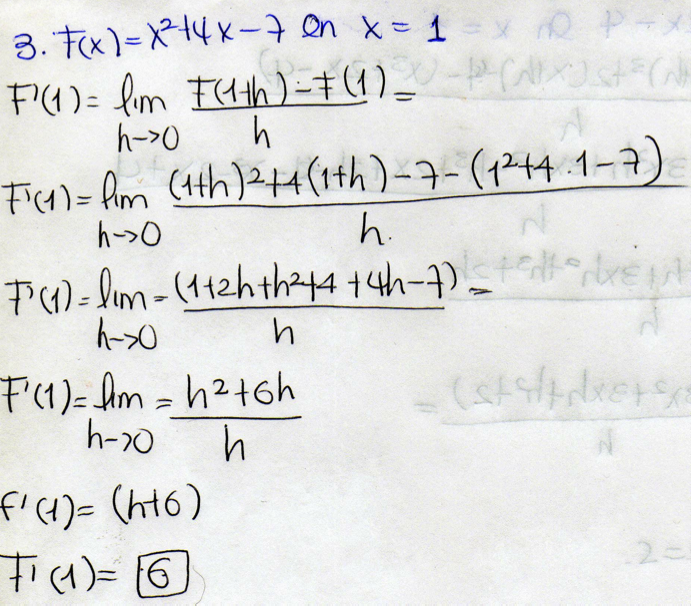 3. F(x)=x²+4x-7 en x=1
F'(1)= lim F(1+h)-F(1) =
h->0 h
F'(1)= lim (1+h)²+4(1+h)-7-(1²+4.1-7)
h->0 h.
F'(1)= lim = (1+2h+h²+4+4h-7) =
h->0 h
F'(1)= lim = h²+6h
h->0 h
f'(1)= (h+6)
F'(1)= 6